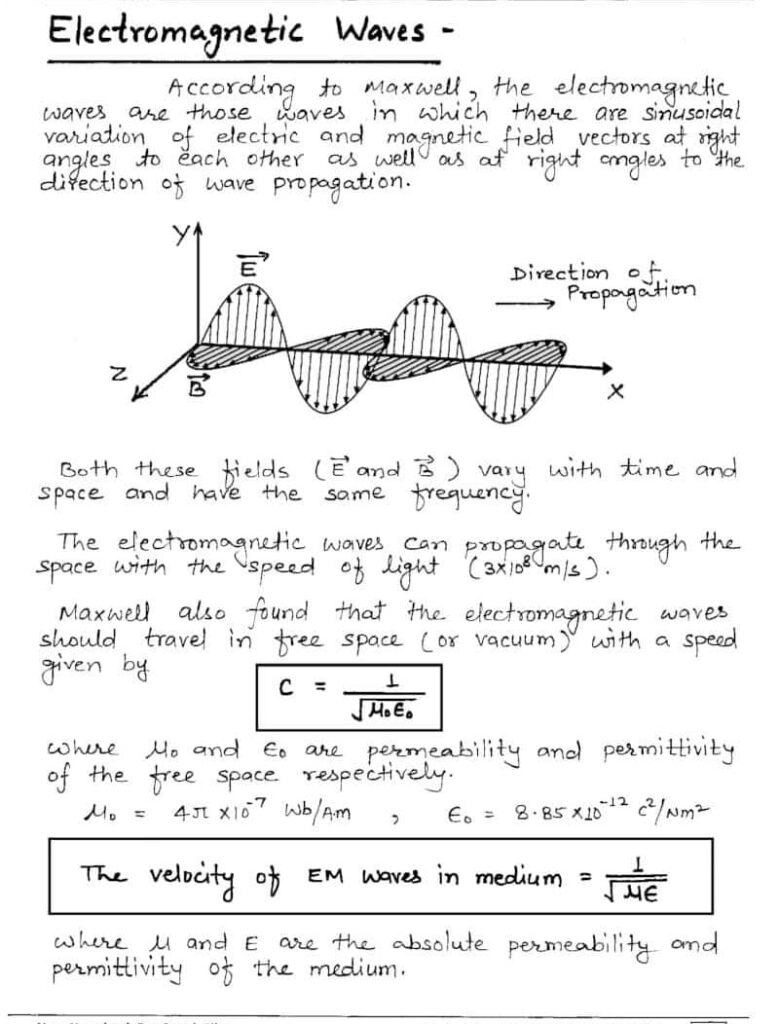 Electromagnetic Waves -
According to Maxwell, the electromagnetic
waves are those waves in which there are sinusoidal
variation of electric and magnetic field vectors at right
angles to each other as well as at right angles to the
direction of wave propagation.
Y
E⃗
Direction of
Propagation
Z
B⃗
X
Both these fields (E⃗ and B⃗) vary with time and
space and have the same frequency.
The electromagnetic waves can propagate through the
space with the speed of light (3×10⁸ m/s).
Maxwell also found that the electromagnetic waves
should travel in free space (or vacuum) with a speed
given by
C = 1/√μ₀ε₀
where μ₀ and ε₀ are permeability and permittivity
of the free space respectively.
μ₀ = 4π ×10⁻⁷ Wb/Am , ε₀ = 8.85 ×10⁻¹² C²/Nm²
The velocity of EM waves in medium = 1/√με
where μ and ε are the absolute permeability and
permittivity of the medium.